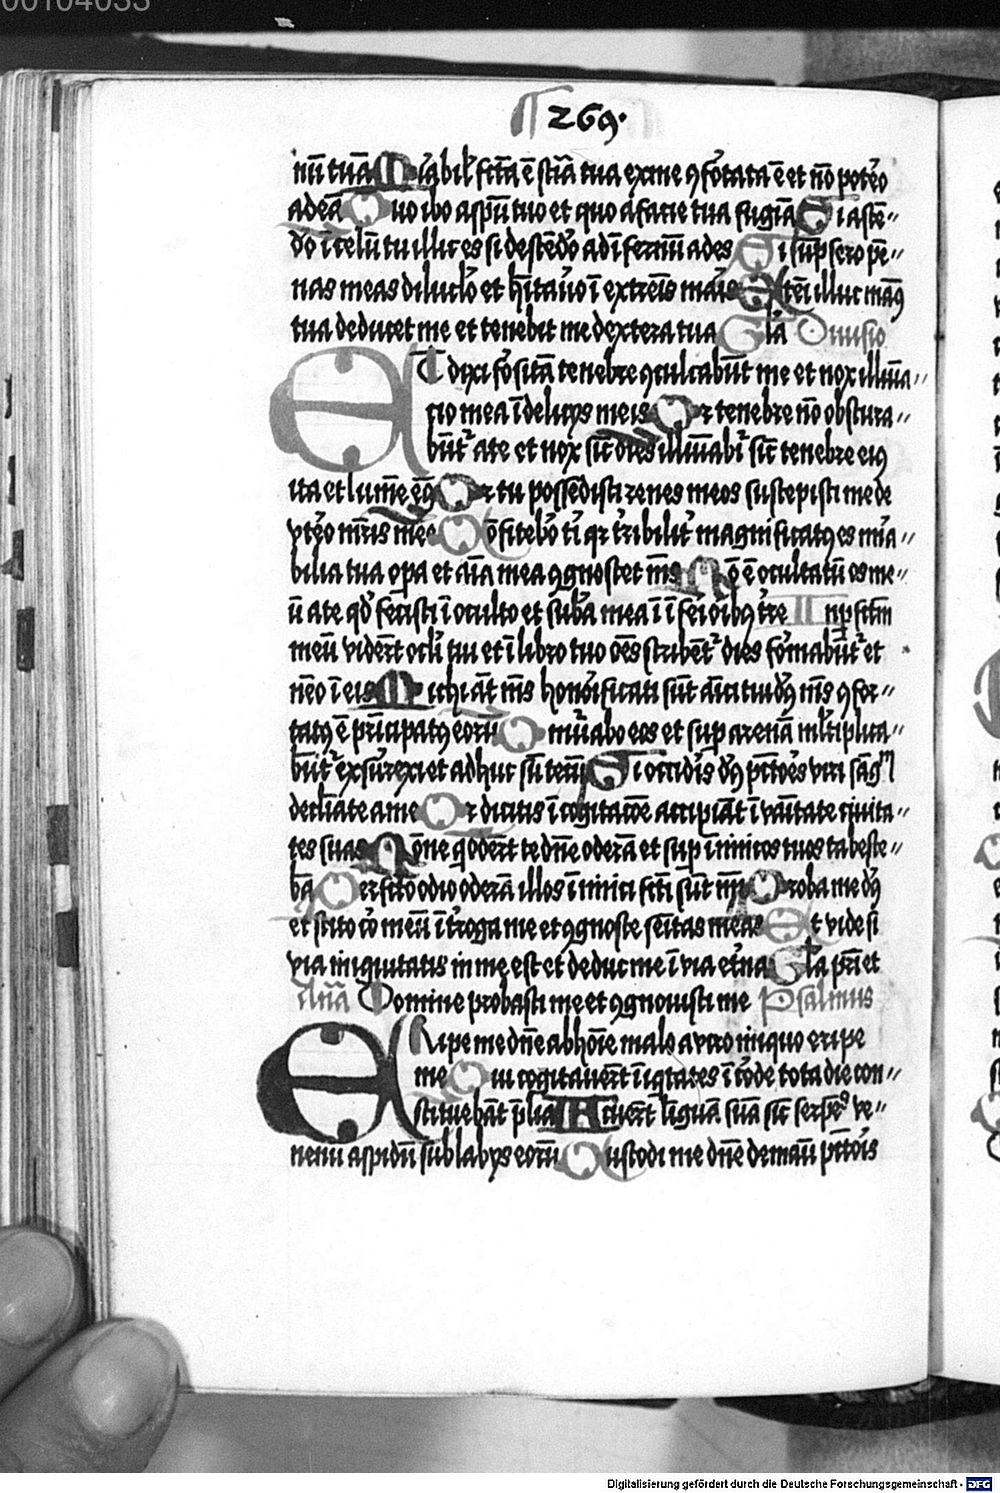 00104033
269.
nū tuā Mirabił fcta ē sciā tua ex me 9fōtata ē et nō potēo
ad eā Quo ibo a spū tuo et quo a facie tua fugiā Si ascē//
dō ī celū tu illic es si descēdō ad īfernū ades Si sūpsero pē//
nas meas diluclō et hītauō ī extrēis mais Et eī illuc man9
tua deducet me et tenebit me dextera tua Glā Diuisio
Et dixi fōsitā tenebre 9culcabūt me et nox illuīa//
cio mea ī delicijs meis Qr tenebre nō obscura//
būt' a te et nox sic̄ dies illuīabi' sic̄ tenebre ei9
ita et lumē ei9 Qr tu possēdisti renes meos suscepisti me de
vtēo mris mee Cōfitebō ti qr tribilit' magnificat9 es mīa//
bilia tua opa et aīa mea 9gnoscet nīs Nō ē ocultatū os me//
ū a te qd̄ fecisti ī oculto et subā mea ī īferiōib9 tre Inpfctm
meū vidert ocli tui et ī libro tuo oēs scribent' dies fōmabūt' et
nēo ī eis Michi āt nīs honōificati sūt amici tui d9 nīs 9for//
tat9 ē prīcipat9 eorū Dinūabo eos et sup arenā mltiplica//
būt' exsūrexi et adhuc sū tecū Si occidis d9 pctōes viri sāg'
declīate a me Qr dicitis ī cogitacōe accipiāt ī vanitate ciuita//
tes suas Nōne q odert te dne oderā et sup inimicos tuos tabesce//
bā Perfcto odio oderā illos īnimici fcti sūt m Proba me d9
et scito cō meū ītroga me et 9gnosce semitas meas Et vide si
via iniquitatis in me est et deduc me ī via etna Gla pri et
Domine probasti me et 9gnouisti me Psalmus
Eripe me dne ab hōie malo a viro iniquo eripe
me Qui cogitauert īiqtates ī corde tota die con//
stituebāt plia Acuert linguā suā sic̄ serpē9 ve//
nenū aspidū sub labijs eorū Custodi me dne de manū pctōis
Digitalisierung gefördert durch die Deutsche Forschungsgemeinschaft - DFG